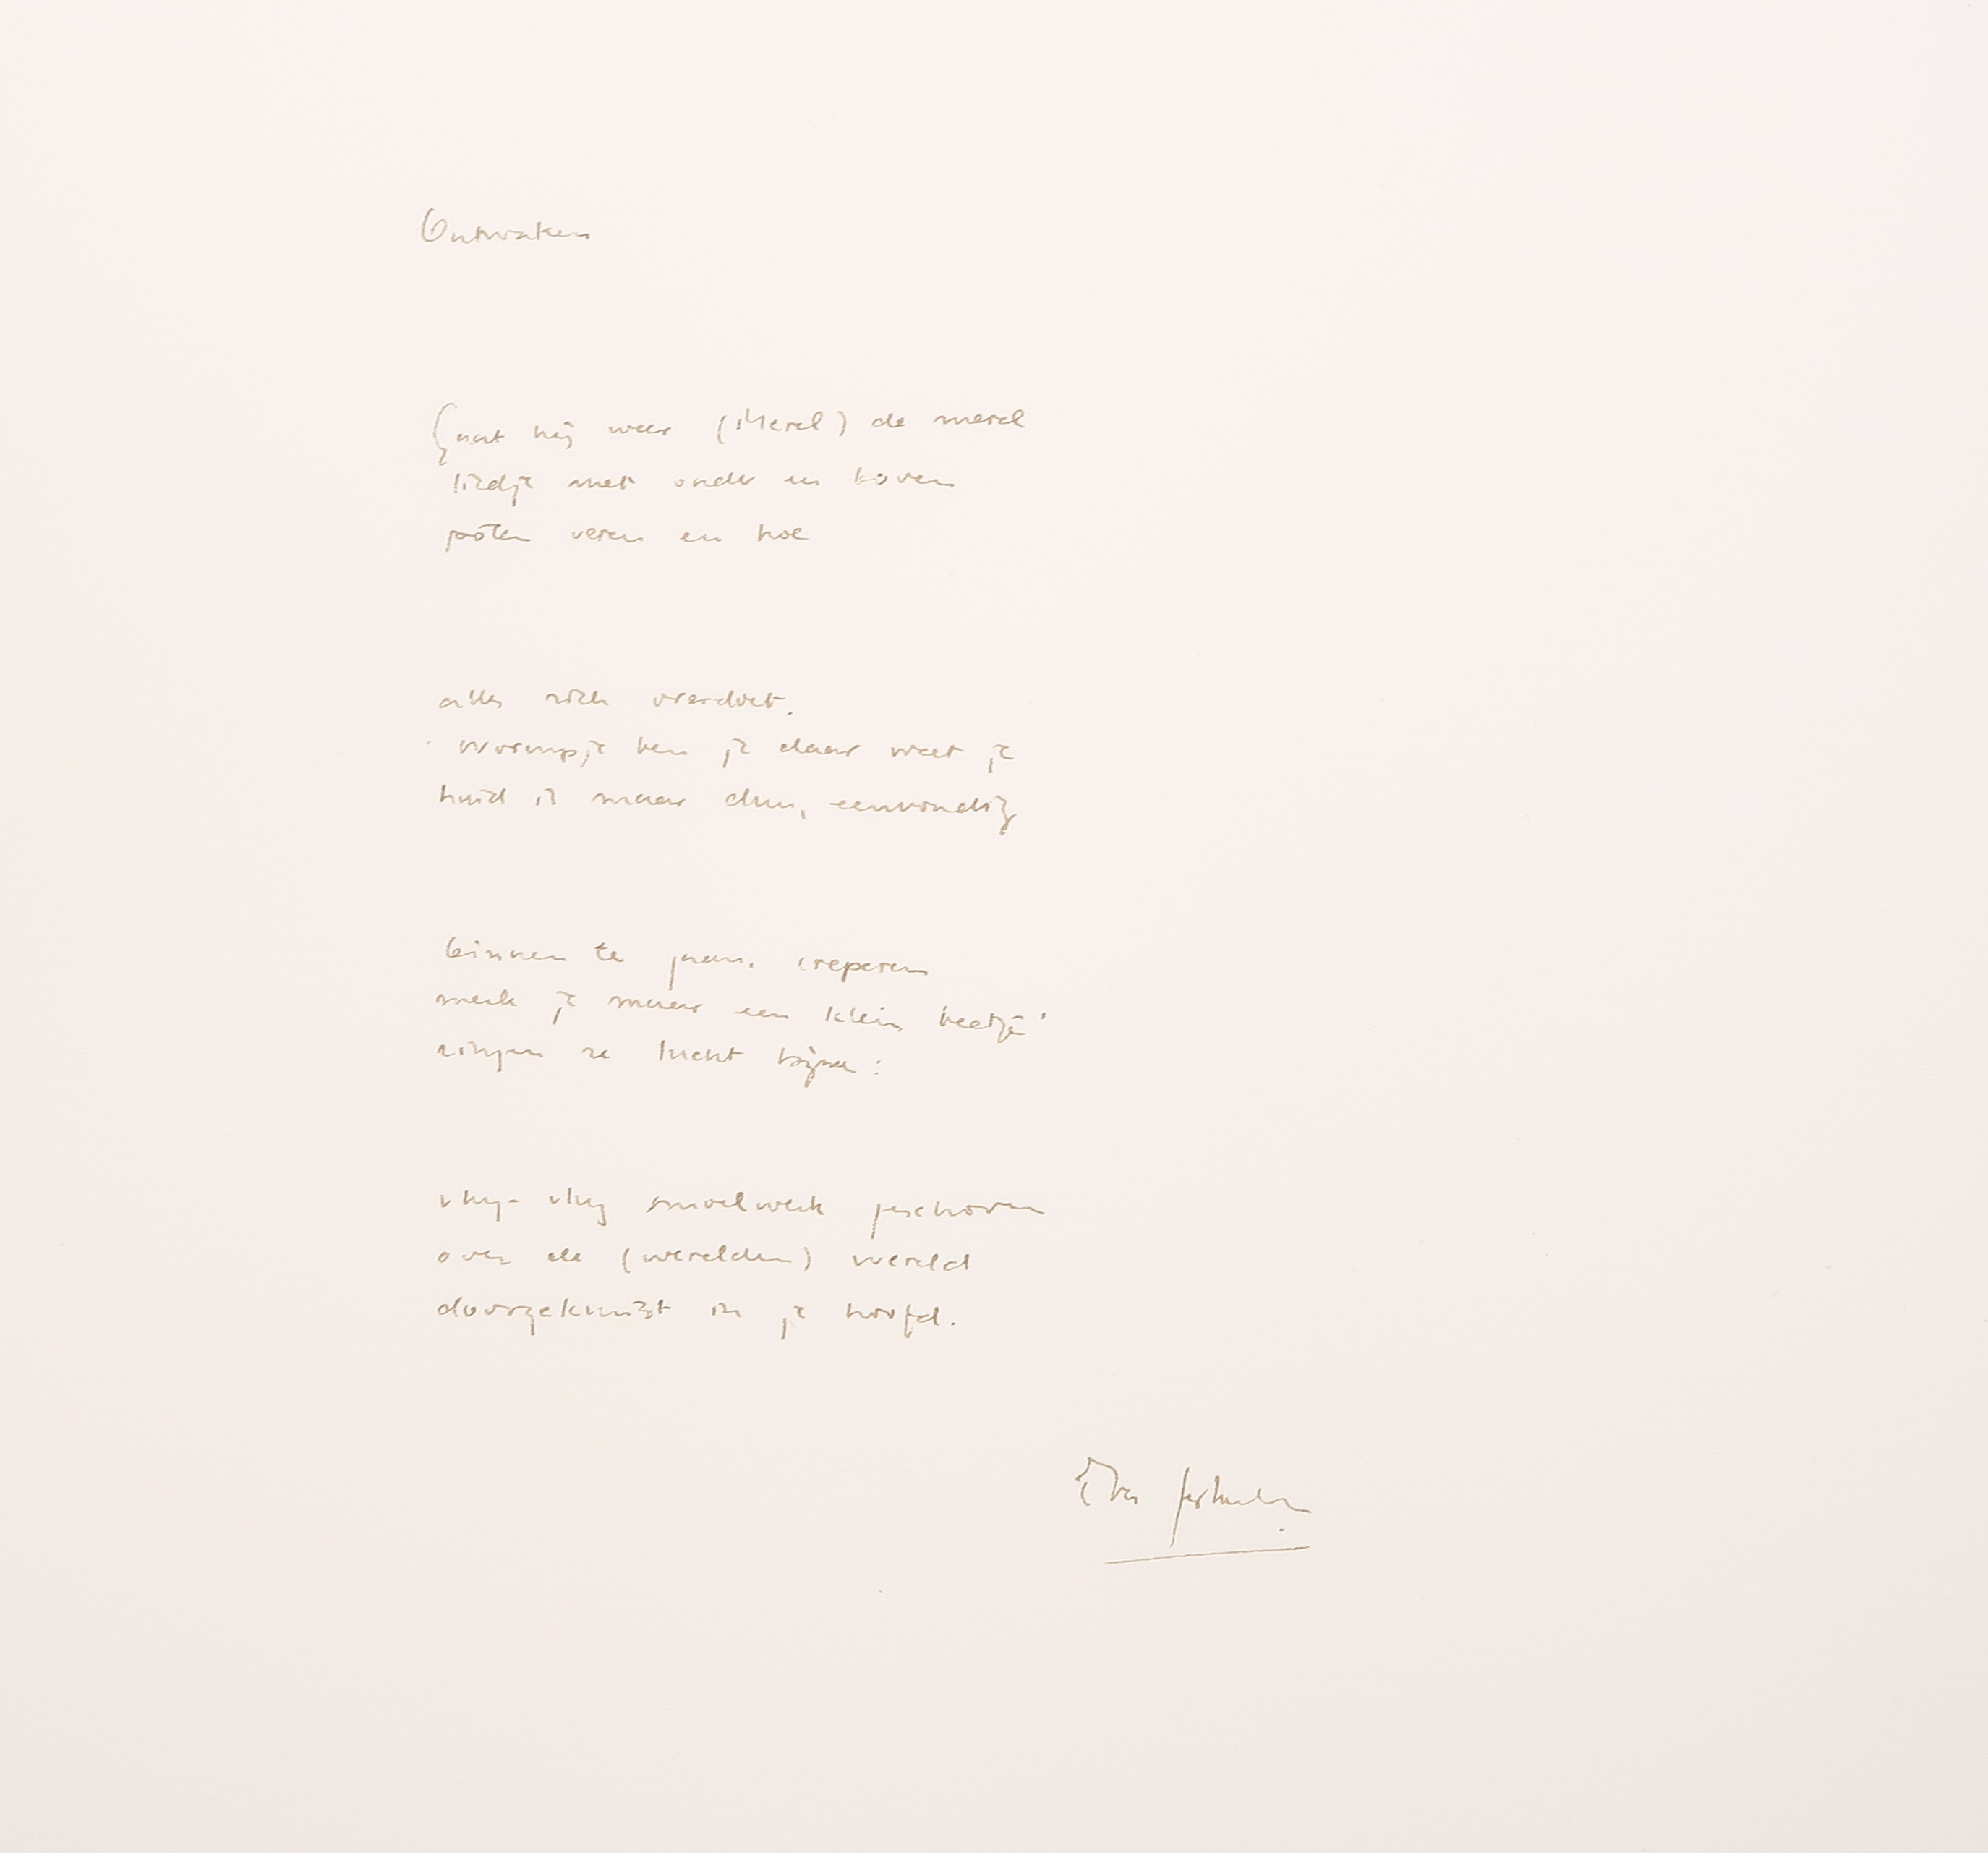 Ontwaken
Gaat hij weer (Merel) de merel
liedje met onder en boven
poten veren en hoe
alles zich voordoet.
wormpje ben je daar weet je
huid is maar dun, eenvoudig
binnen te gaan. creperen
merk je maar een klein beetje'
zingen ze lucht bijna:
vlug-vlug smoelwerk geschoven
over de (werelden) wereld
doorgekruist in je hoofd.
Eva Gerlach